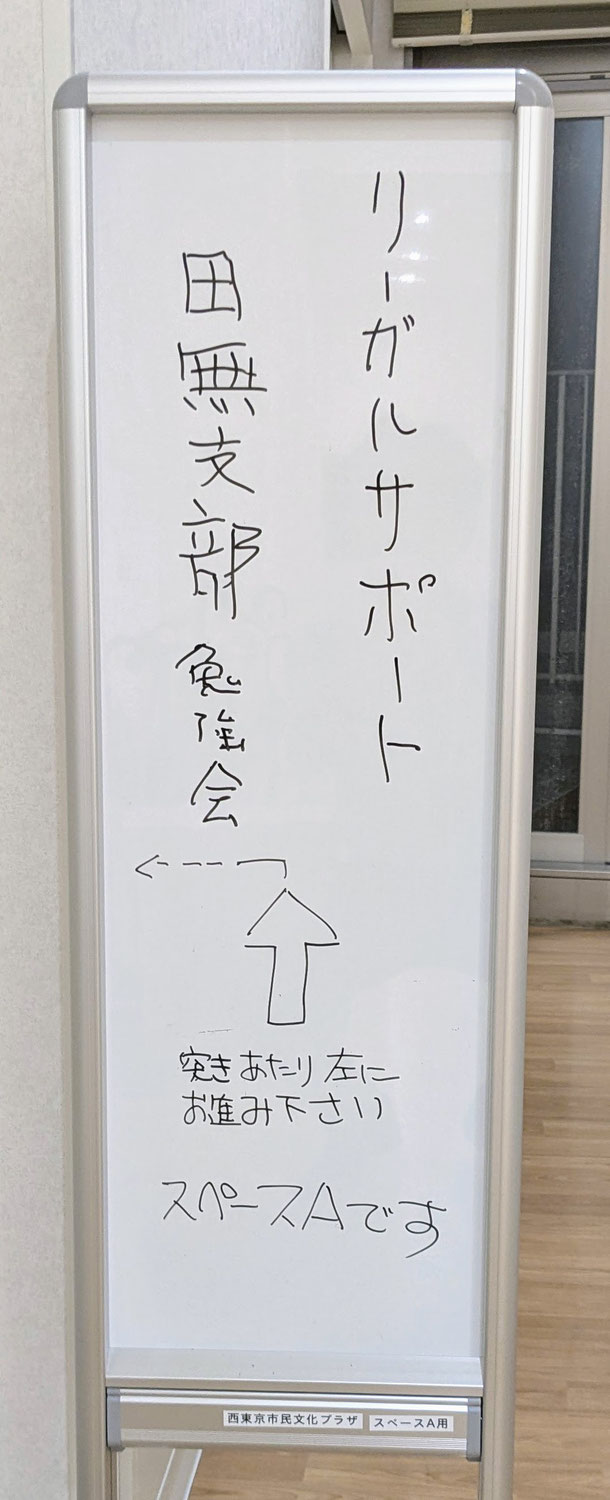 リーガルサポート
田無支部勉強会
突きあたり左に
お進み下さい
スペースAです
西東京市民文化プラザ スペースA用